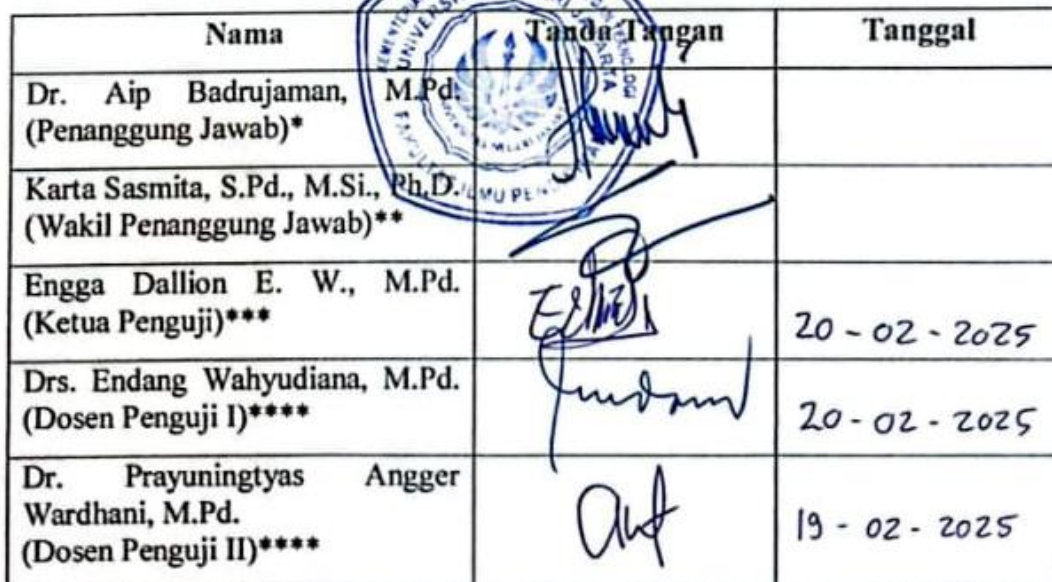 Nama Tanda Tangan Tanggal
Dr. Aip Badrujaman, M.Pd.
(Penanggung Jawab)*
Karta Sasmita, S.Pd., M.Si., Ph.D.
(Wakil Penanggung Jawab)**
Engga Dallion E. W., M.Pd.
(Ketua Penguji)***
20 - 02 - 2025
Drs. Endang Wahyudiana, M.Pd.
(Dosen Penguji I)****
20 - 02 - 2025
Dr. Prayuningtyas Angger
Wardhani, M.Pd.
(Dosen Penguji II)****
19 - 02 - 2025